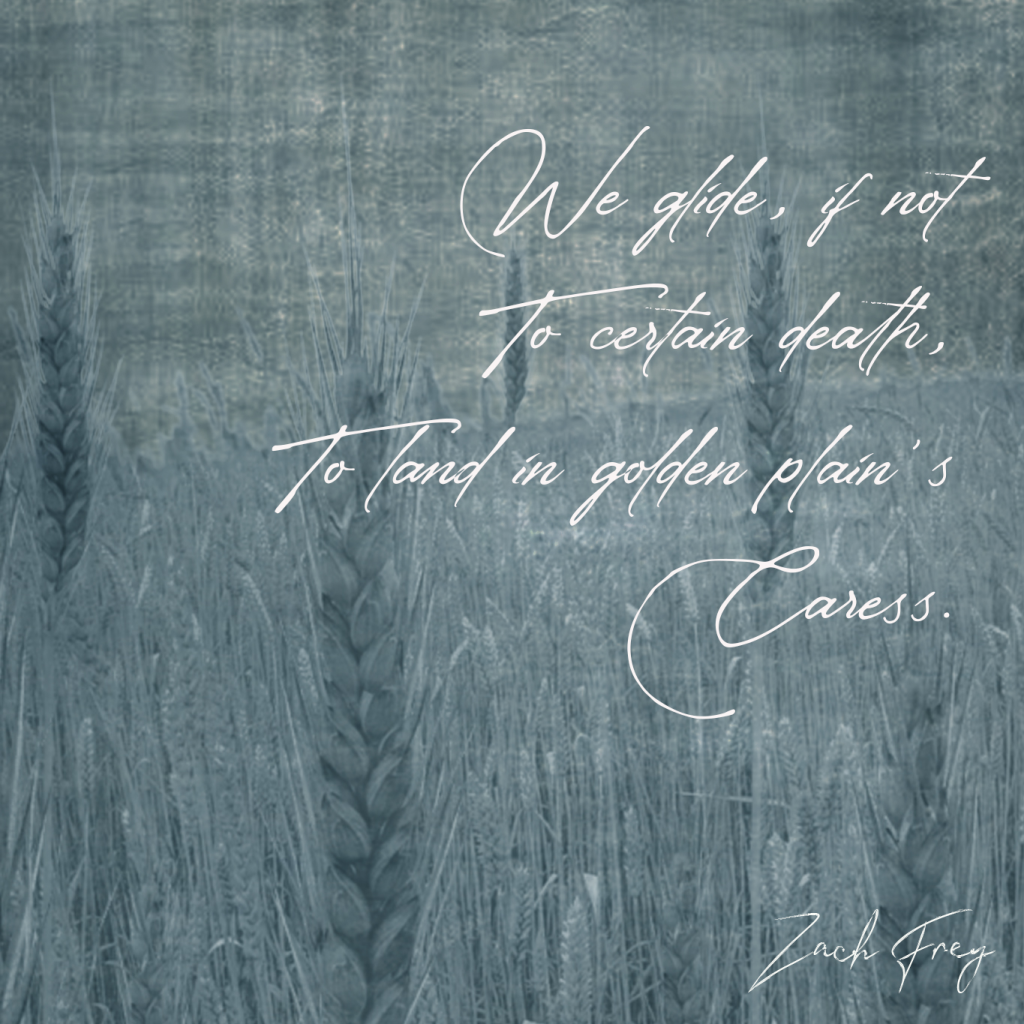 We glide, if not
To certain death,
To land in golden plain's
Caress.
Zach Frey